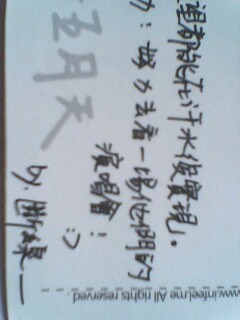 望都能在汗水後實現。
力：努力去看一場他們的
演唱會！:)
五月天
by.
www.infeel.me All rights reserved.